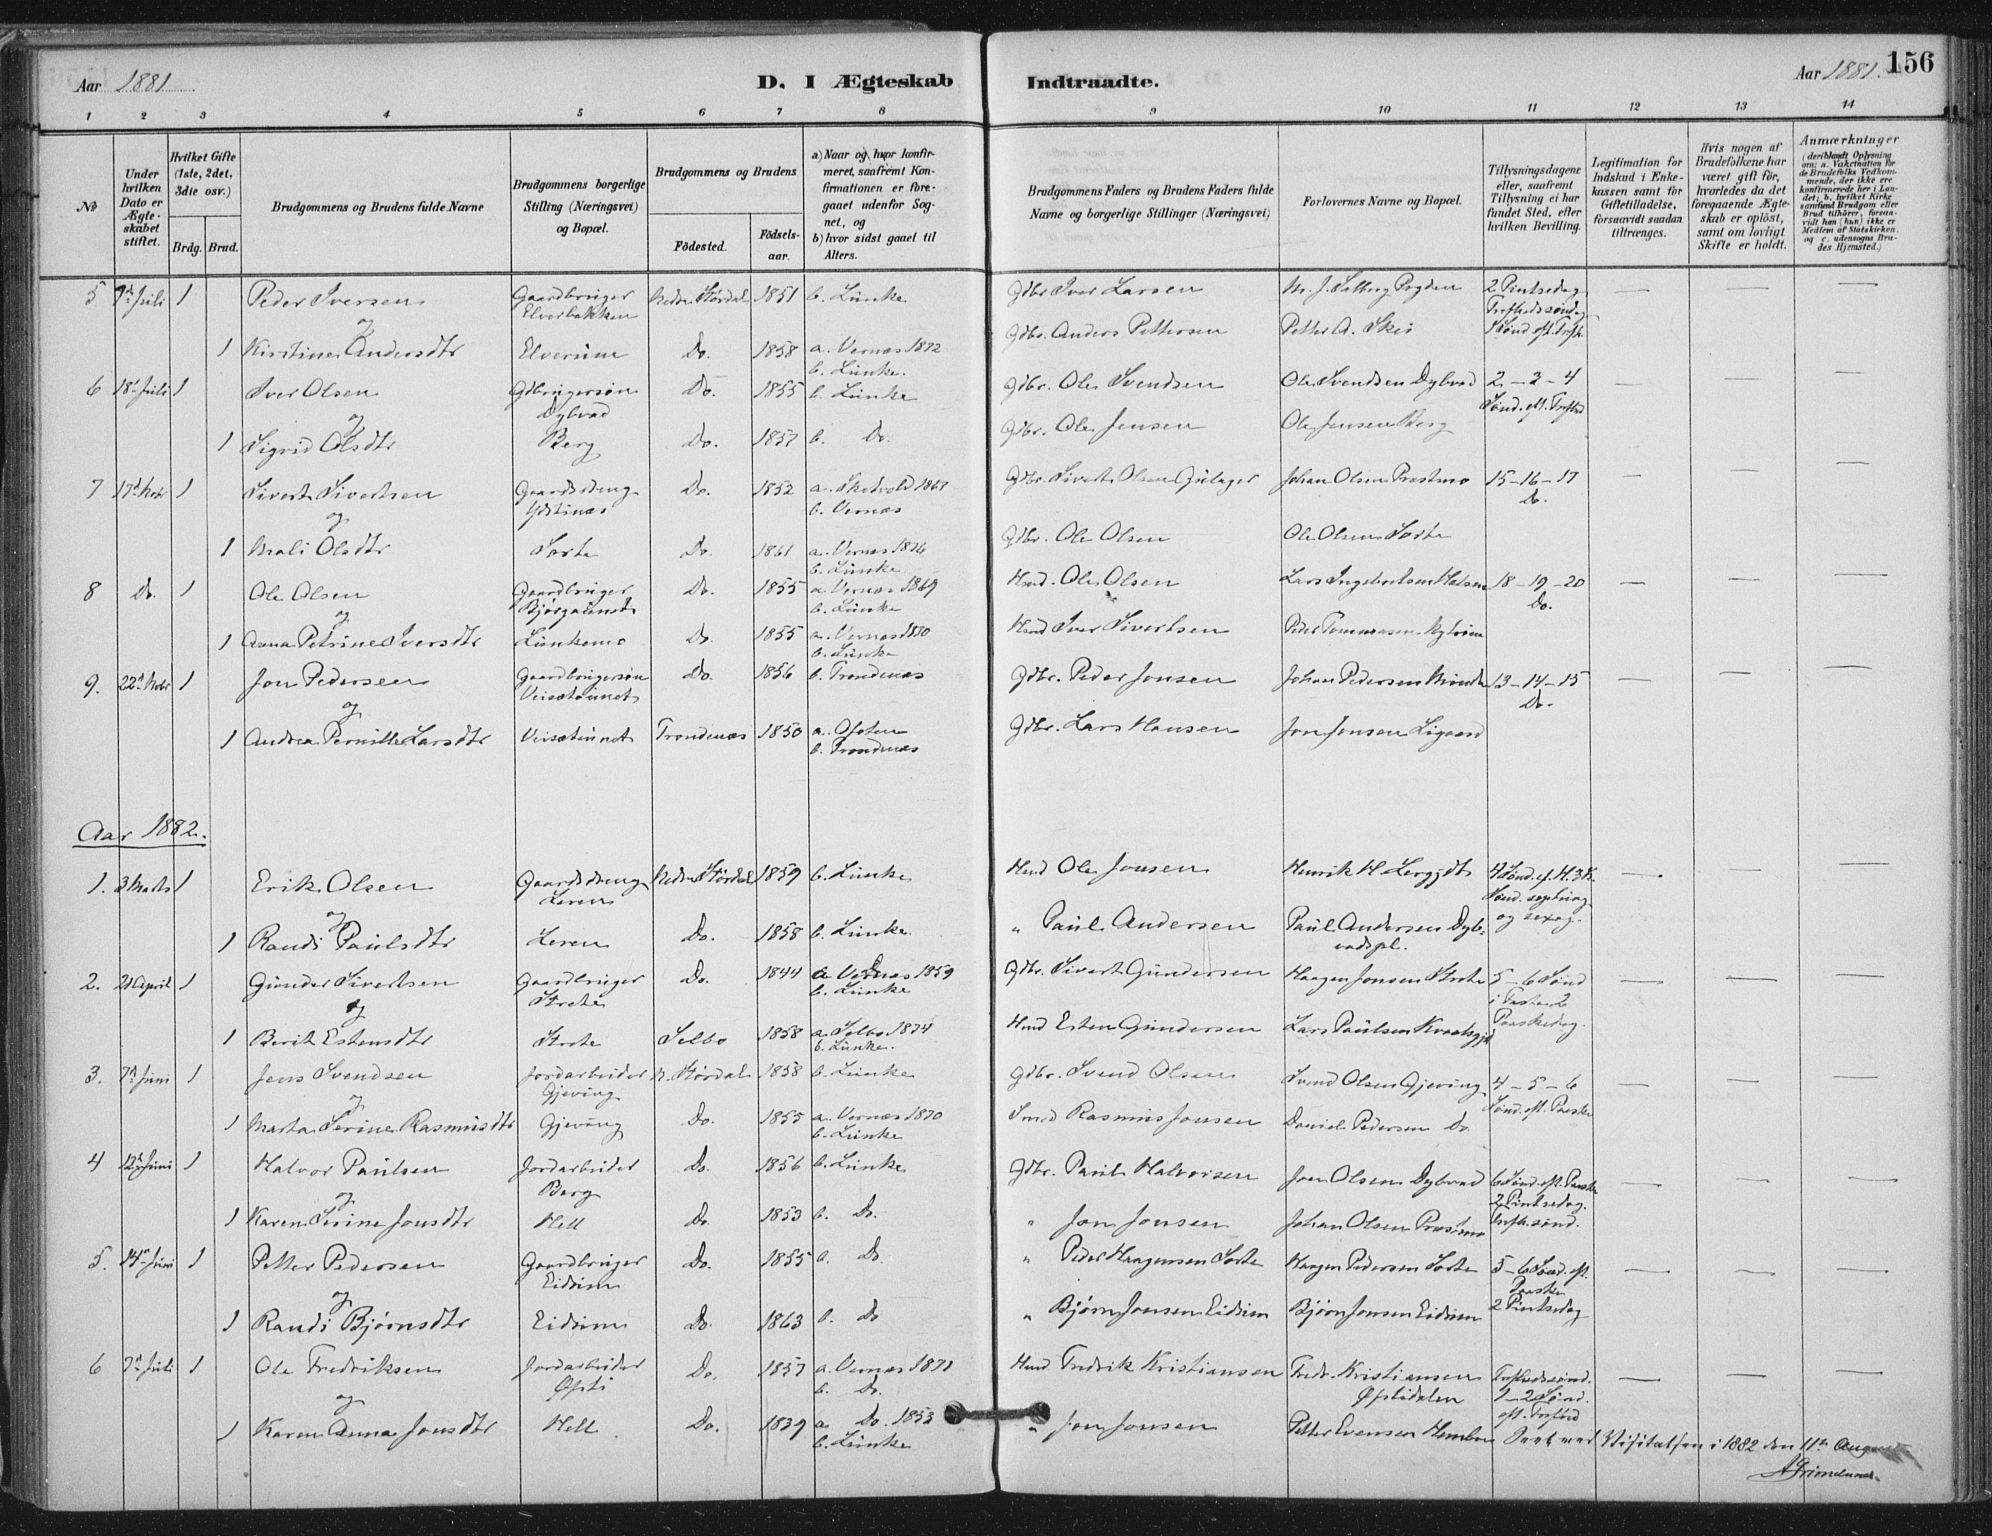 Aar 1881
D. I Ægteskab
Indtraadte.
Aar 1881.
156
1 2 3 4 5 6 7 8 9 10 11 12 13 14
No
Under hvilken Dato er Ægteskabet stiftet.
Hvilket Gifte (1ste, 2det, 3die osv.)
Brdg. Brud.
Brudgommens og Brudens fulde Navne
Brudgommens borgerlige Stilling (Næringsvei) og Bopæl.
Brudgommens og Brudens
Födested.
Födsels-aar.
a) Naar og hvor konfirmeret, saafremt Konfirmationen er foregaaet udenfor Sognet, og
b) hvor sidst gaaet til Alters.
Brudgommens Faders og Brudens Faders fulde Navne og borgerlige Stillinger (Næringsvei)
Forlovernes Navne og Bopæl.
Tillysningsdagene eller, saafremt Tillysning ei har fundet Sted, efter hvilken Bevilling.
Legitimation for Indskud i Enkekassen samt for Giftetilladelse, forsaavidt saadan tiltrænges.
Hvis nogen af Brudefolkene har været gift før, hvorledes da det foregaaende Ægteskab er opløst, samt om lovligt Skifte er holdt.
Anmærkninger
(deriblandt Oplysning om: a. Vakcination for de Brudefolks Vedkommende, der ikke ere konfirmerede her i Landet; b. hvilket Kirkesamfund Brudgom eller Brud tilhörer, forsaavidt han (hun) ikke er Medlem af Statskirken, og c. udensogns Brudes Hjemsted.)
5 7de Juli 1 Peder Iversen Gaardbruger Elverbakken Nedre Stördal 1851 b. Lånke Gdbr. Iver Larsen 2 Pintsedag
og
1 Kirstine Andersdtr Elverum Do. 1858 a. Vernæs 1872 b. Lånke. Gdbr. Anders Pettersen Petter A. Skei
6 18de Juli 1 Iver Olsen Gdbrugersøn Dybvad Do. 1855 b. Lånke Gdbr. Ole Svendsen Ole Svendsen Dybvad 2 - 3 - 4
og
1 Sigrid Olsdtr Berg Do. 1857 b. Do. Gdbr. Ole Jensen Ole Jensen Berg
7 17de Nobr 1 Sivert Sivertsen Gaardsdreng Ydstines Do. 1852 a. Skatvold 1867 b. Vernæs Gdbr. Sivert Olsen Johan Olsen Præstmo 15 - 16 - 17 Do.
og
1 Mali Olsdtr Sorte Do. 1861 a. Vernæs 1876 b. Lånke Gdbr. Ole Olsen Ole Olsen Sorte
8 Do. 1 Ole Olsen Gaardbruger Do. 1855 a. Vernæs 1869 b. Lånke Husd. Ole Olsen Lars Ingebretsen 18 - 19 - 20 Do.
og
1 Anna Petrine Iversdtr Lånkemo Do. 1855 a. Vernæs 1870 b. Lånke Husd Iver Sivertsen Peder Tommasen
9. 22de Nobr 1 Jon Pedersen Gaardbrugersøn Do. 1856 b. Trondenæs Gdbr. Peder Jonsen Johan Pedersen 13 - 14 - 15 Do.
og
1 Andrea Pernille Larsdtr Trondenæs 1850 a. Ofoten b. Trondenæs Gdbr. Lars Hansen Jon Jonsen Ligaard
Aar 1882.
1. 3 Marts 1 Erik Olsen Gaardsdreng Leren Nedre Stördal 1859 b. Lånke Husd Ole Jonsen Henrik H.
og
1 Randi Paulsdtr Leren Do. 1858 b. Lånke. " Paul Andersen Paul Andersen Dybvadspl. og sexag.
2. 21 April 1 Gunder Sivertsen Gaardbruger Do. 1844 a. Vernæs 1859 b. Lånke Gdbr. Sivert Gundersen Haagen Jonsen 5 - 6 Sönd
og
1 Berit Estensdtr Selbo 1858 a. Selbo 1874 b. Lånke. Husd Esten Gundersen Lars Paulsen Paaskedag.
3. 7de Juni 1 Jens Svendsen Jordarbeider Gjeving N. Stördal 1858 b. Lånke Gdbr. Svend Olsen Svend Olsen Gjeving 4 - 5 - 6 Sönd. eft. Paaske
og
1 Marta Serine Rasmusdtr Gjeving Do. 1855 a. Vernæs 1870 b. Lånke Smed Rasmus Jonsen Daniel Pedersen Do.
4 12te Juni 1 Halvor Paulsen Jordarbeider Berg Do. 1856 b. Lånke Gdbr. Paul Halvorsen Jon Olsen Dybvad 6 Sönd. eft. Paaske 2 Pintsedag.
og
1 Karen Serine Jonsdtr Hell Do. 1853 b. Do. " Jon Jonsen Johan Olsen Præstmo
5. 14de Juni 1 Petter Pedersen Gaardbruger Eidum Do. 1855 a. Do. " Peder Haagensen Sorte Haagen Pedersen Sorte 5 - 6 Sönd. eft. Paaske
og
1 Randi Bjørnsdtr Eidum Do. 1863 b. Do " Bjørn Jonsen Eidum Bjørn Jonsen Eidum 2 Pintsedag
6 7de Juli 1 Ole Fredriksen Jordarbeider Øfsti Do. 1857 a. Vernæs 1871 b. Do. Husd Fredrik Kristiansen Fredr. Kristiansen Øfstidalen 1 - 2 Sönd.
og
1 Karen Anna Jonsdtr Hell Do. 1839 a. Do. 1853 b. Lånke " Jon Jonsen Petter Evensen
Visitatsen i 1882 den 11te August
AGrimelund.